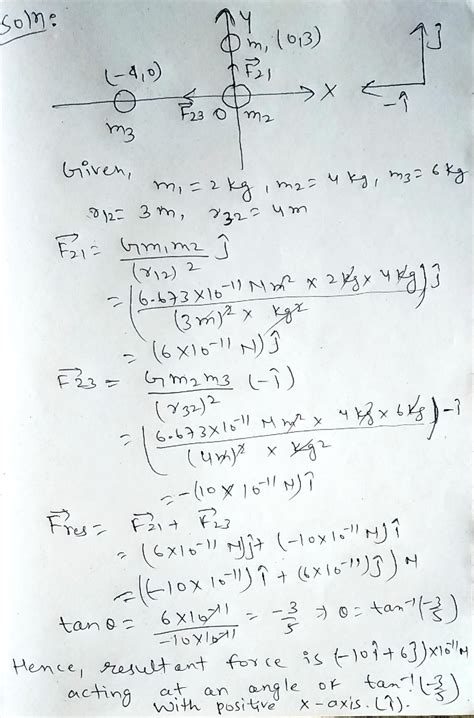 Soln:
Y
m₁ (0,3)
(-4,0)
F⃗₂₁
X
ĵ
-î
F⃗₂₃ O m₂
m₃
Given,
m₁ = 2 kg, m₂ = 4 kg, m₃ = 6 kg
r₁₂ = 3 m, r₃₂ = 4 m
F⃗₂₁ = Gm₁m₂ / (r₁₂)² ĵ
= (6.673×10⁻¹¹ N m² × 2 kg × 4 kg / (3m)² × kg²) ĵ
= (6×10⁻¹¹ N) ĵ
F⃗₂₃ = Gm₂m₃ / (r₃₂)² (-î)
= (6.673×10⁻¹¹ N m² × 4 kg × 6 kg / (4m)² × kg²) -î
= -(10×10⁻¹¹ N) î
F⃗res = F⃗₂₁ + F⃗₂₃
= (6×10⁻¹¹ N) ĵ + (-10×10⁻¹¹ N) î
= ((-10×10⁻¹¹) î + (6×10⁻¹¹) ĵ) N
tan θ = 6×10⁻¹¹ / -10×10⁻¹¹ = -3/5 → θ = tan⁻¹(-3/5)
Hence, resultant force is (-10î + 6ĵ)×10⁻¹¹ N
acting at an angle of tan⁻¹(-3/5)
with positive x-axis. (î).